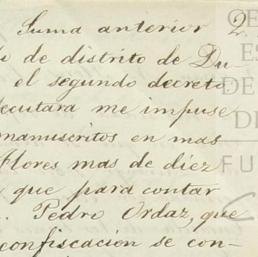 Suma anterior 2
o de distrito de Du
el segundo decreto
ecutara me impuse
manuscritos en mas
Flores mas de diez
que para contar
Pedro Ordaz, que
confiscacion se con-